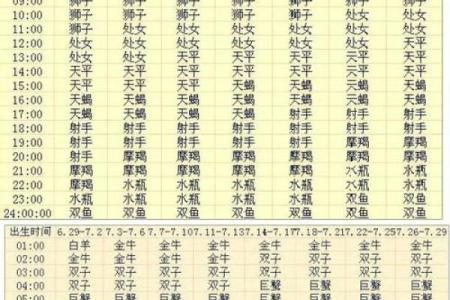 09:00 狮子 狮子 狮子 狮子 狮子 狮子 狮子
10:00 狮子 狮子 狮子 狮子 狮子 处女 处女
11:00 狮子 处女 处女 处女 处女 处女 处女
12:00 处女 处女 处女 处女 处女 天平 天平
13:00 处女 处女 天平 天平 天平 天平 天平
14:00 天平 天平 天平 天平 天平 天平 天平
15:00 天平 天平 天平 天蝎 天蝎 天蝎 天蝎
16:00 天蝎 天蝎 天蝎 天蝎 天蝎 天蝎 天蝎
17:00 天蝎 天蝎 天蝎 天蝎 射手 射手 射手
18:00 射手 射手 射手 射手 射手 射手 射手
19:00 射手 射手 射手 射手 射手 摩羯 摩羯
20:00 射手 摩羯 摩羯 摩羯 摩羯 摩羯 摩羯
21:00 摩羯 摩羯 摩羯 摩羯 摩羯 水瓶 水瓶
22:00 摩羯 水瓶 水瓶 水瓶 水瓶 水瓶 水瓶
23:00 水瓶 水瓶 水瓶 水瓶 水瓶 双鱼 双鱼
24:00:00 双鱼 双鱼 双鱼 双鱼 双鱼 双鱼 双鱼
出生时间 6.29-7.2 7.3-7.6 7.7-7.10 7.11-7.13 7.14-7.17 7.18-7.21 7.22-7.25 7.26-7.29
01:00 白羊 金牛 金牛 金牛 金牛 金牛 金牛 金牛
02:00 金牛 金牛 金牛 金牛 双子 双子 双子 双子
03:00 双子 双子 双子 双子 双子 双子 双子 双子
04:00 双子 双子 双子 双子 巨蟹 巨蟹 巨蟹 巨蟹
05:00 巨蟹 巨蟹 巨蟹 巨蟹 巨蟹 巨蟹 巨蟹 巨蟹